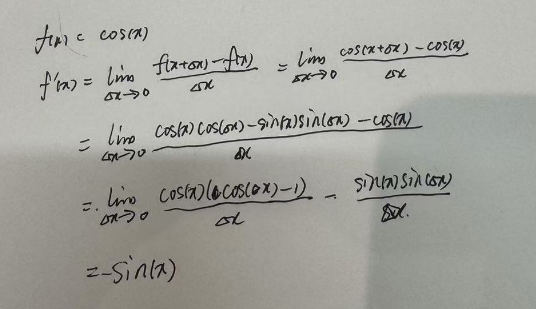 f(x) = cos(x)
f'(x) = lim Δx→0 (f(x+Δx)-f(x))/Δx = lim Δx→0 (cos(x+Δx)-cos(x))/Δx
= lim Δx→0 (cos(x)cos(Δx)-sin(x)sin(Δx)-cos(x))/Δx
= lim Δx→0 (cos(x)(cos(Δx)-1))/Δx - (sin(x)sin(Δx))/Δx
=-sin(x)